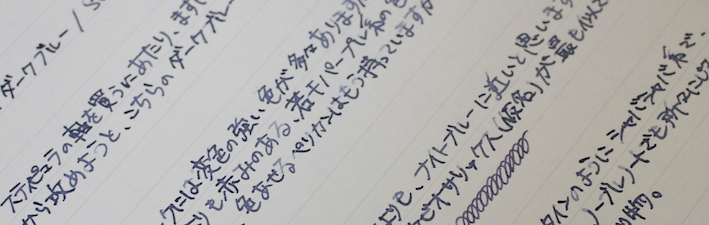 ダークブルー / S
スティピュラの軸を買うにあたり、まず
から攻めようと、こちらのダークブルー
クには変色の強い色が多くあります
りも赤みのある、若干パープル系の
色あせるペリカンはもう持っていますが
よりも、ナイトブルーに近いと思います
ゼオサリックス(仮名)が最も似て
タインのようにシャバシャバ系で、
ノーブルノートでも